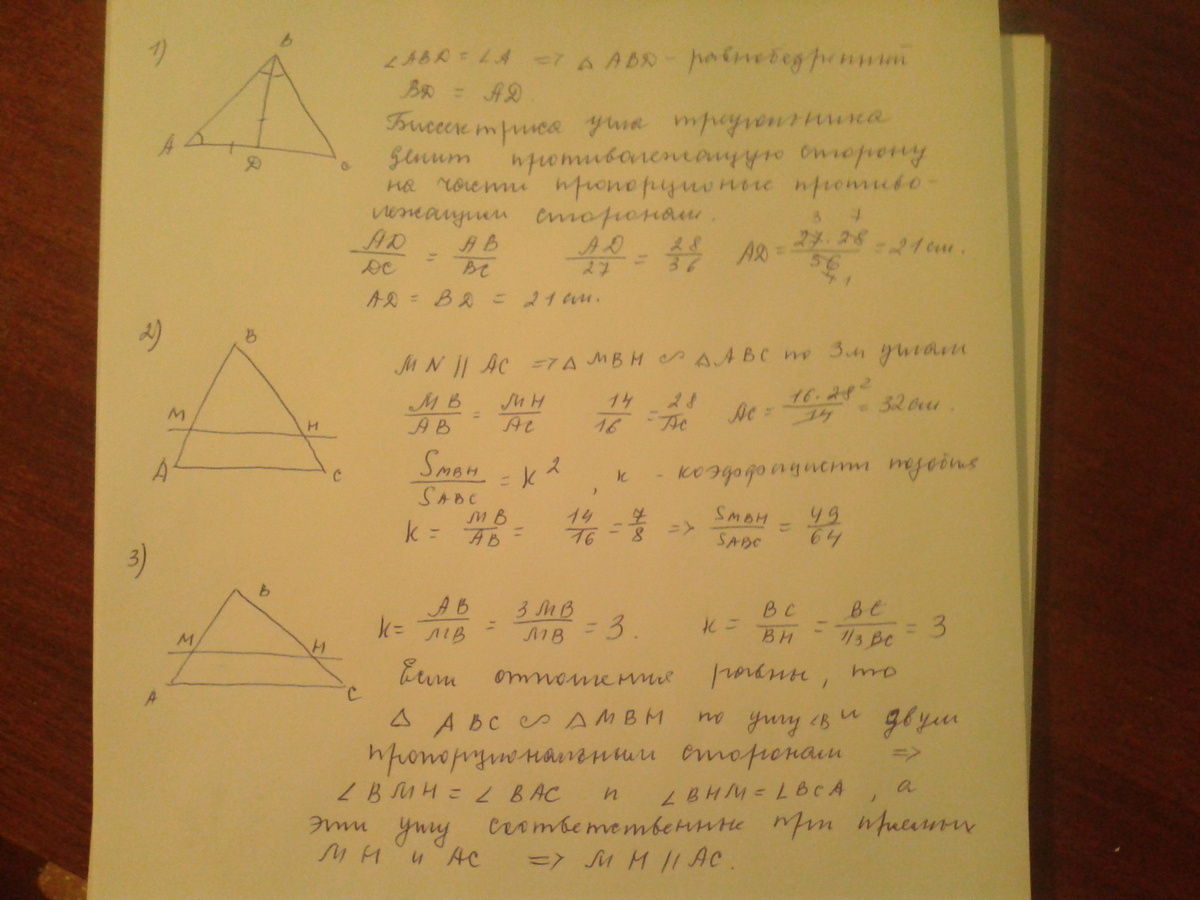 1)
B
A
D
C
∠ABD = ∠A => △ABD - равнобедренный
BD = AD.
Биссектриса угла треугольника
делит противолежащую сторону
на части пропорционые противо-
лежащим сторонам.
AD/DC = AB/BC   AD/27 = 28/36   AD = 27·28/56 = 21 см.
3 7
4 1
AD = BD = 21 см.
2)
B
M
H
A
C
MN || AC => △MBH ∽ △ABC по 3м углам
MB/AB = MH/AC   14/16 = 28/AC   AC = 16·28²/14 = 32 см.
S MBH/S ABC = K², к - коэффициент подобия
K = MB/AB = 14/16 = 7/8 => S MBH/S ABC = 49/64
3)
B
M
H
A
C
K = AB/MB = 3MB/MB = 3.   K = BC/BH = BC/1/3 BC = 3
Если отношения равны, то
△ABC ∽ △MBH по углу ∠B и двум
пропорциональным сторонам =>
∠BMH = ∠BAC и ∠BHM = ∠BCA, а
эти углу соответственные при прямых
MH и AC => MH || AC.